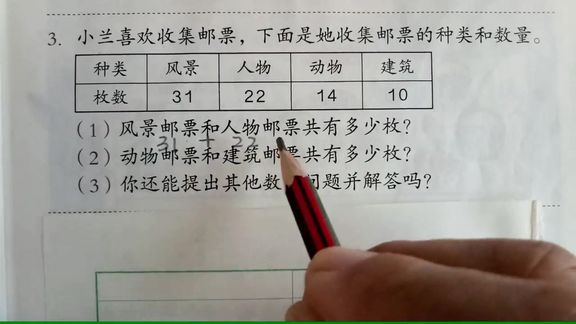 3. 小兰喜欢收集邮票，下面是她收集邮票的种类和数量。
种类 风景 人物 动物 建筑
枚数 31 22 14 10
（1）风景邮票和人物邮票共有多少枚？
31 + 22
（2）动物邮票和建筑邮票共有多少枚？
（3）你还能提出其他数 问题并解答吗？